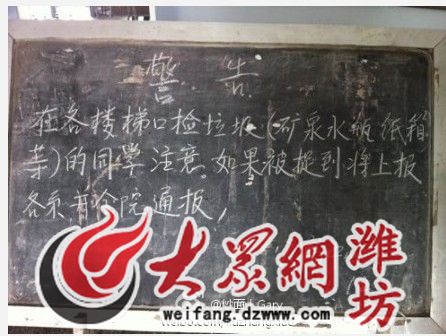 警告
在各楼梯口捡垃圾(矿泉水瓶纸箱
等)的同学注意。如果被捉到将上报
各系并全院通报,
大眾網
潍坊
weifang.dzwww.com